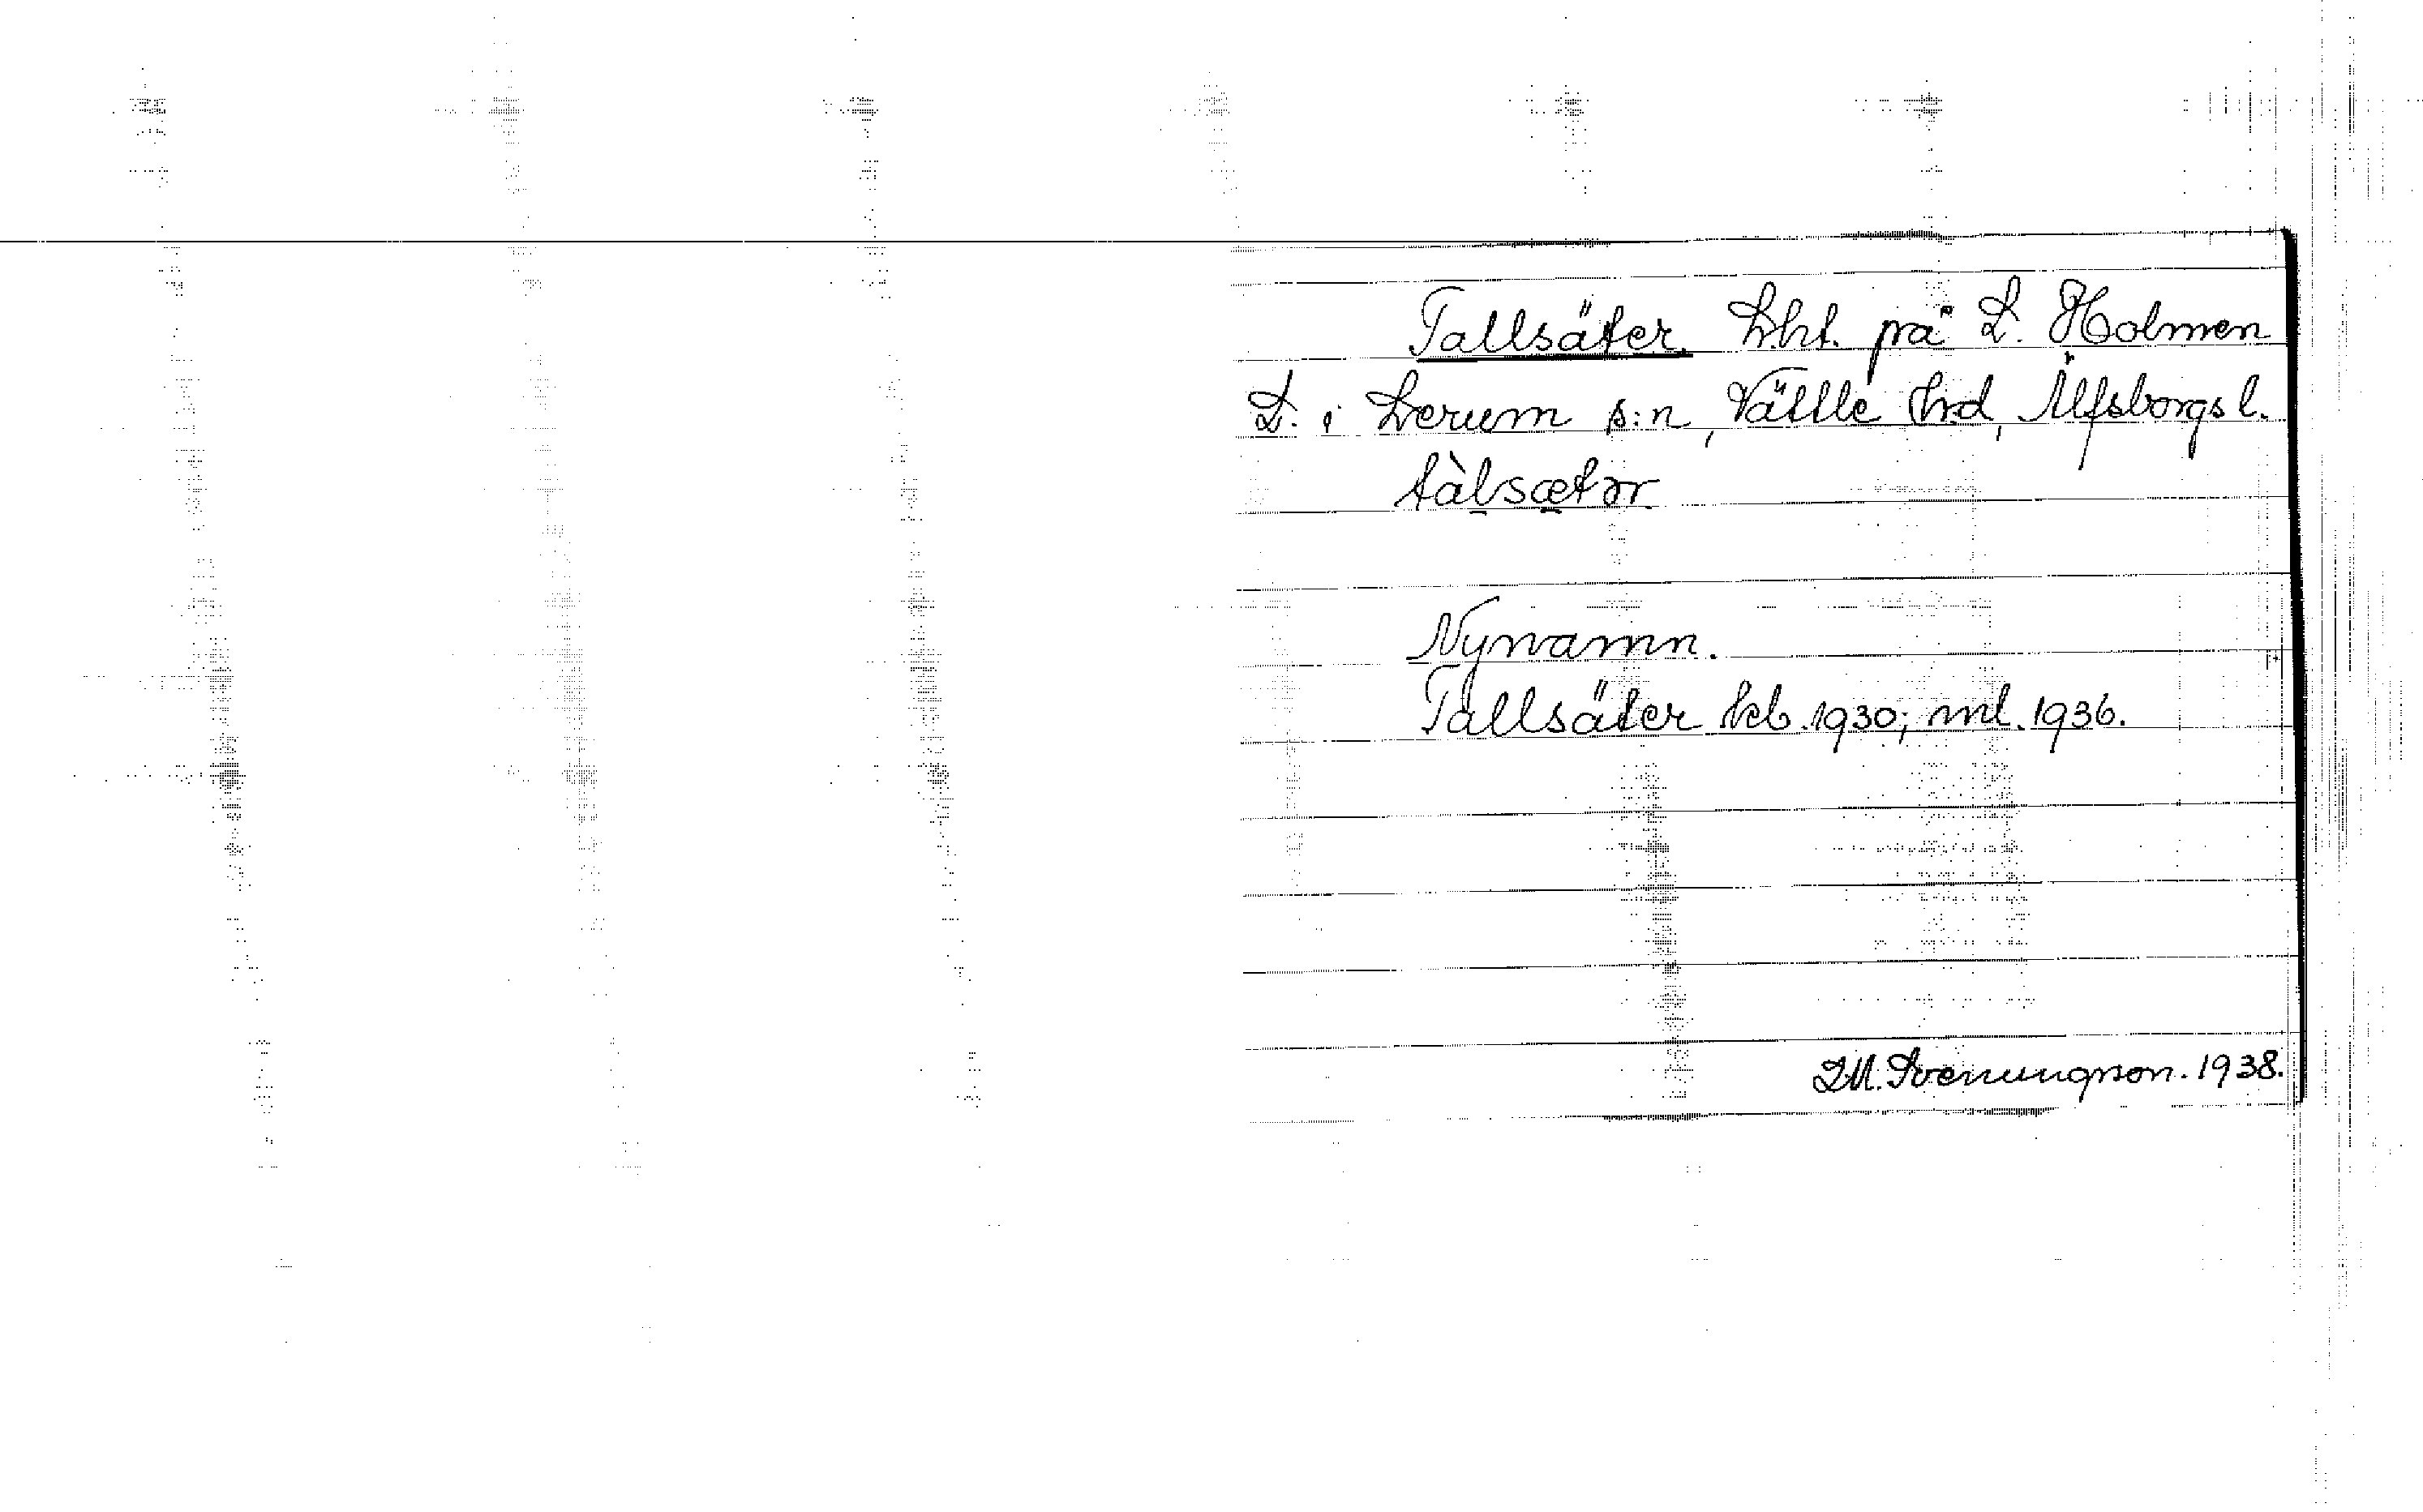 Tallsäter, lht. på L. Holmen
L. i Lerum s:n, Vättle hrd, Älfsborgs l.
tàlsætər
Nynamn.
Tallsäter kb. 1930; ml. 1936.
I.M. Svenungson. 1938.